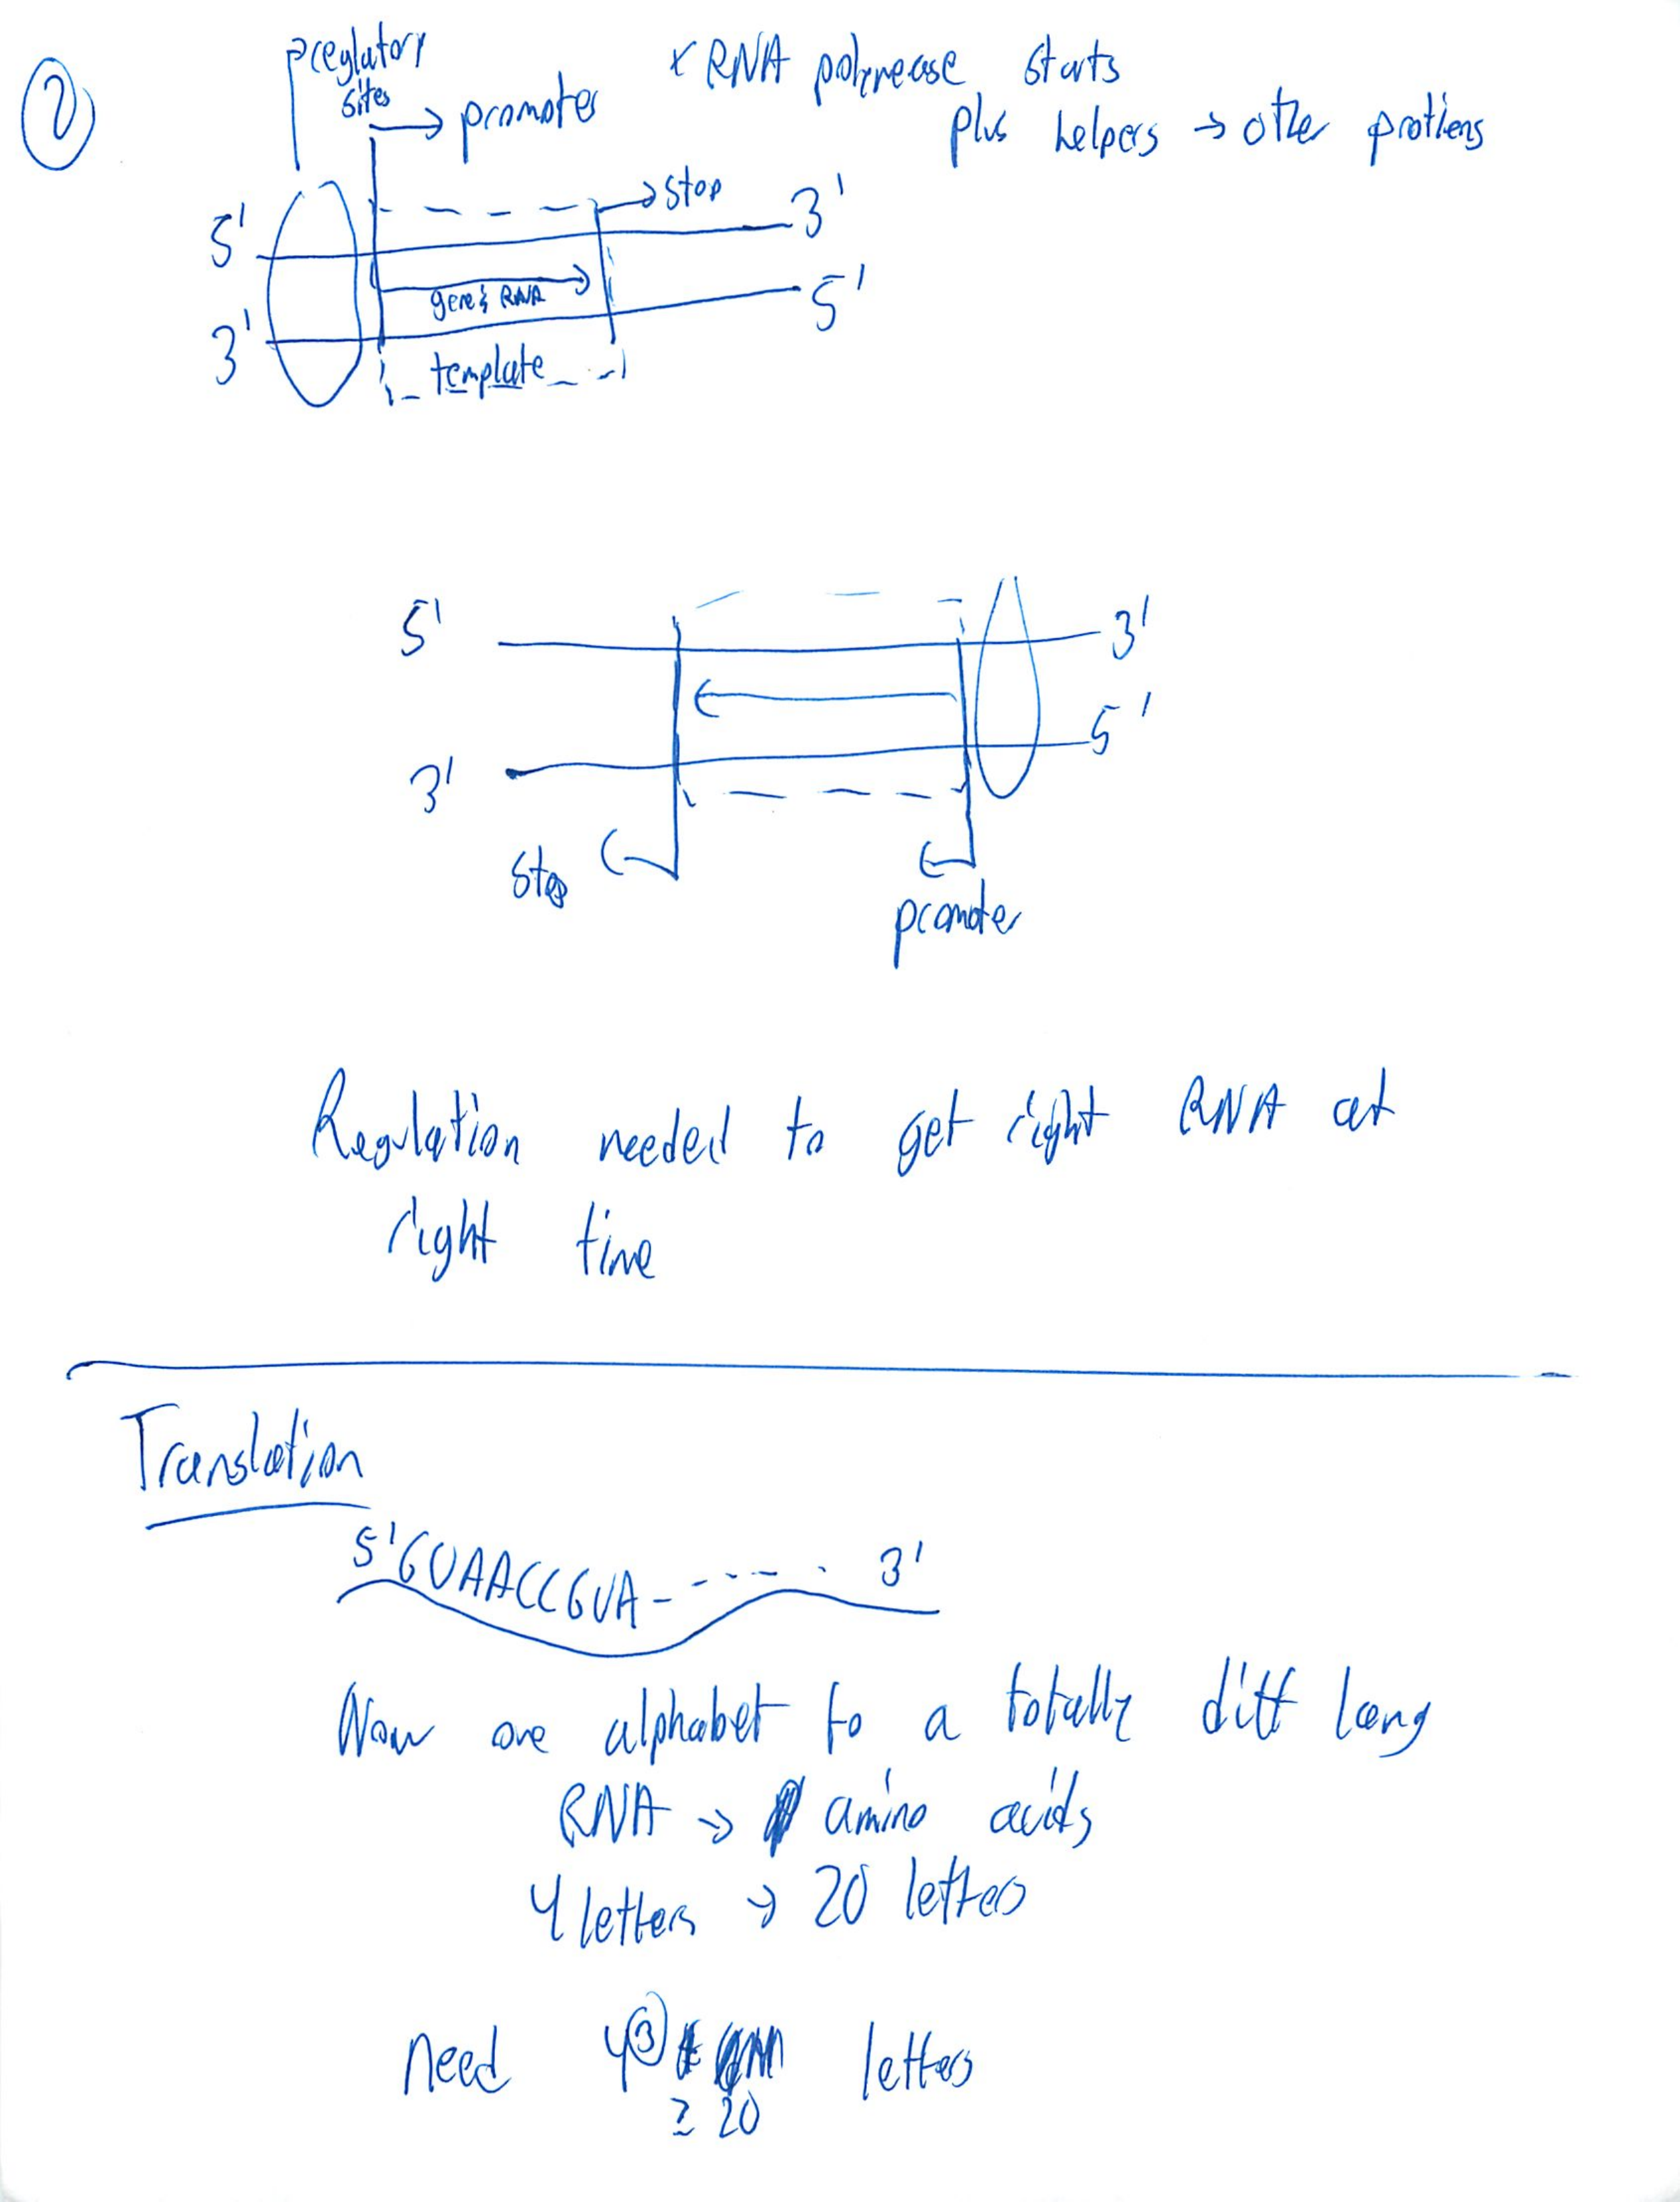 ②
regulatory
sites
→ promoter
* RNA polymerase starts
plus helpers → other protiens
→ stop
5' 3'
gene's RNA
3' 5'
template
5' 3'
3' 5'
stop
promoter
Regulation needed to get right RNA at
right time
Translation
5' GUAACCGUA - - - - - . 3'
Now one alphabet to a totally diff lang
RNA → amino acids
4 letters → 20 letters
need 4³ letters
≥ 20